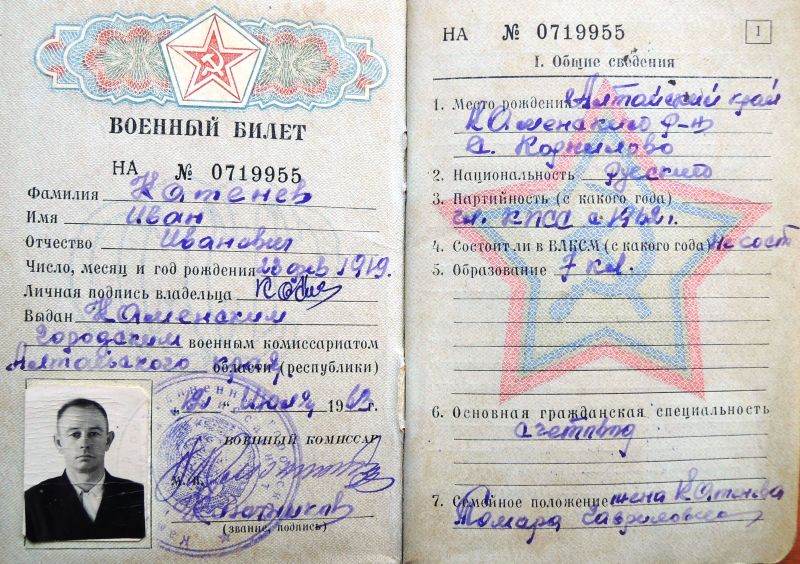 ВОЕННЫЙ БИЛЕТ
НА № 0719955
Фамилия Катенев
Имя Иван
Отчество Иванович
Число, месяц и год рождения 1919.
Личная подпись владельца
Выдан Каменским
Городским военным комиссариатом
Алтайского края области (республики)
Июля 1963 г.
ВОЕННЫЙ КОМИССАР
М. П.
(звание, подпись)
НА № 0719955
1
I. Общие сведения
1. Место рождения Алтайский край
Каменского р-н
с. Корнилово
2. Национальность русский
3. Партийность (с какого года)
чл. КПСС с 1942 г.
4. Состоит ли в ВЛКСМ (с какого года) не сост
5. Образование 7 кл.
6. Основная гражданская специальность
счетовод
7. Семейное положение жена Катенева
Тамара Гавриловна